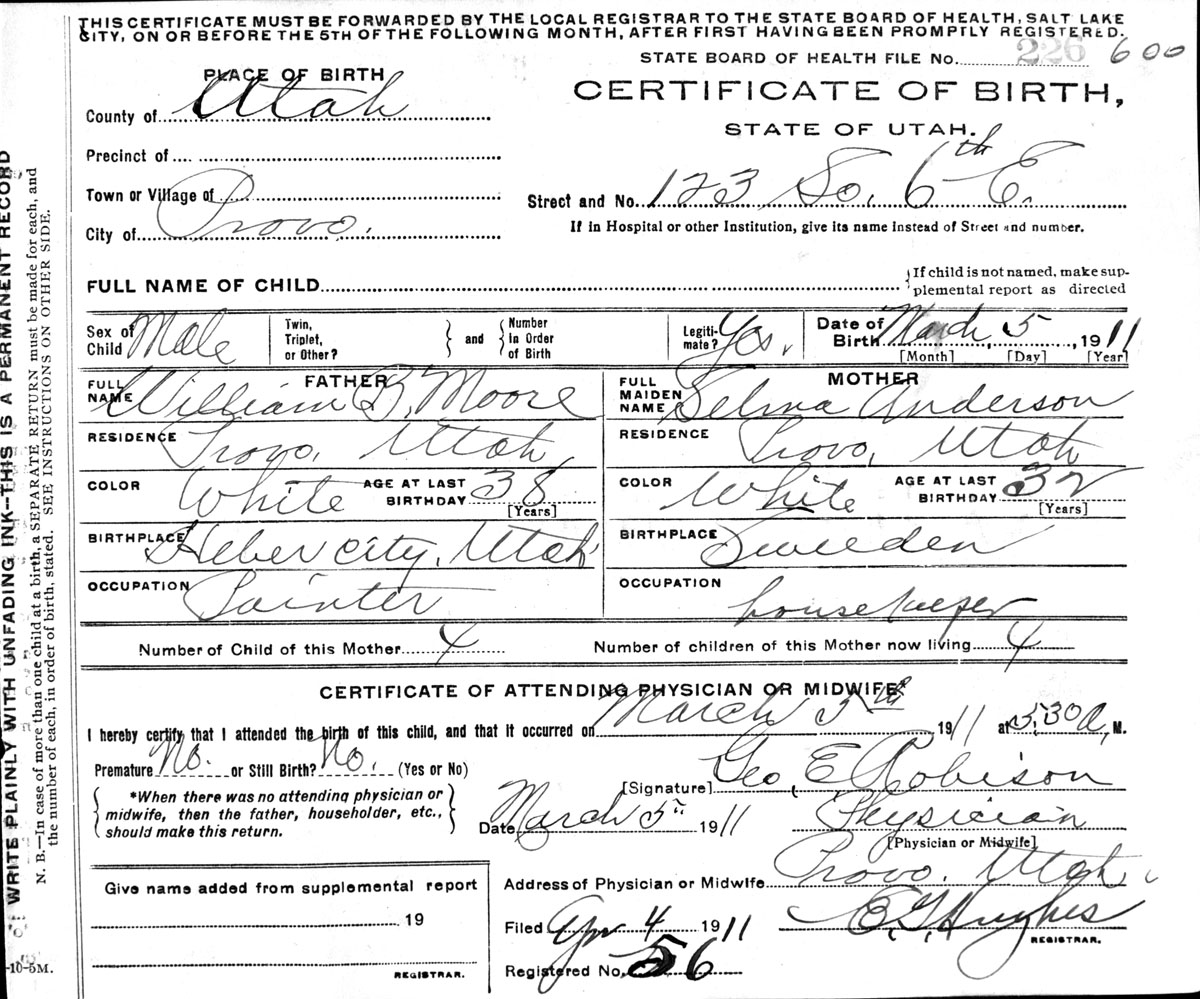 THIS CERTIFICATE MUST BE FORWARDED BY THE LOCAL REGISTRAR TO THE STATE BOARD OF HEALTH, SALT LAKE
CITY, ON OR BEFORE THE 5TH OF THE FOLLOWING MONTH, AFTER FIRST HAVING BEEN PROMPTLY REGISTERED.
STATE BOARD OF HEALTH FILE No. 226 600
PLACE OF BIRTH
CERTIFICATE OF BIRTH,
STATE OF UTAH.
County of Utah
Precinct of
Town or Village of
City of Provo.
Street and No. 123 So. 6th E.
If in Hospital or other Institution, give its name instead of Street and number.
FULL NAME OF CHILD
If child is not named, make sup-
plemental report as directed
Sex of Child Male
Twin, Triplet, or Other?
and
Number In Order of Birth
Legiti-mate? Yes.
Date of Birth March 5, 1911
[Month] [Day] [Year]
FATHER
FULL NAME William B. Moore
MOTHER
FULL MAIDEN NAME Selma Anderson
RESIDENCE Provo, Utah
RESIDENCE Provo, Utah
COLOR White AGE AT LAST BIRTHDAY 38 [Years]
COLOR White AGE AT LAST BIRTHDAY 32 [Years]
BIRTHPLACE Heber city, Utah
BIRTHPLACE Sweeden
OCCUPATION Painter
OCCUPATION housekeeper
Number of Child of this Mother 4
Number of children of this Mother now living 4
CERTIFICATE OF ATTENDING PHYSICIAN OR MIDWIFE*
I hereby certify that I attended the birth of this child, and that it occurred on March 5th 1911 at 5:30 a, M.
Premature No. or Still Birth? No. (Yes or No)
[Signature] Geo. E. Robison
*When there was no attending physician or
midwife, then the father, householder, etc.,
should make this return.
Date March 5th 1911
Physician
[Physician or Midwife]
Give name added from supplemental report
19
REGISTRAR.
Address of Physician or Midwife Provo. Utah
Filed Apr 4 1911
E. G. Hughes
REGISTRAR.
Registered No. 56
WRITE PLAINLY WITH UNFADING INK--THIS IS A PERMANENT RECORD
N. B.—In case of more than one child at a birth, a SEPARATE RETURN must be made for each, and
the number of each, in order of birth, stated. SEE INSTRUCTIONS ON OTHER SIDE.
-10-5M.